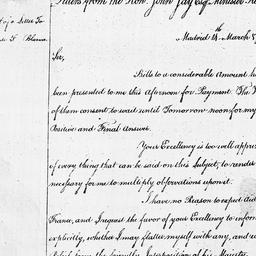 Letters from the Hon. John Jay Esq. Minister
Jay's Letter To
Blanca.
Madrid 14th March
Sir,
Bills to a considerable Amount ha
been presented to me this Afternoon for Payment. The
of them consent to wait until Tomorrow noon for my
Positive and Final Answer.
Your Excellency is too well appri
of every thing that can be said on this Subject, to render
necessary for me to multiply observations upon it.
I have no Reason to expect Aid
France, and I request the favor of your Excellency to inform
explicitly, whether I may flatter myself with any, and
Relief from the friendly Interposition of his Majesty.